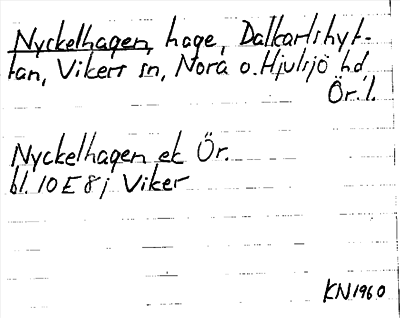 Nyckelhagen, hage, Dalkarlshyt-
tan, Vikers sn, Nora o. Hjulsjö hd
Ör. l.
Nyckelhagen ek Ör.
bl. 10 E 8 j Viker
KN1960